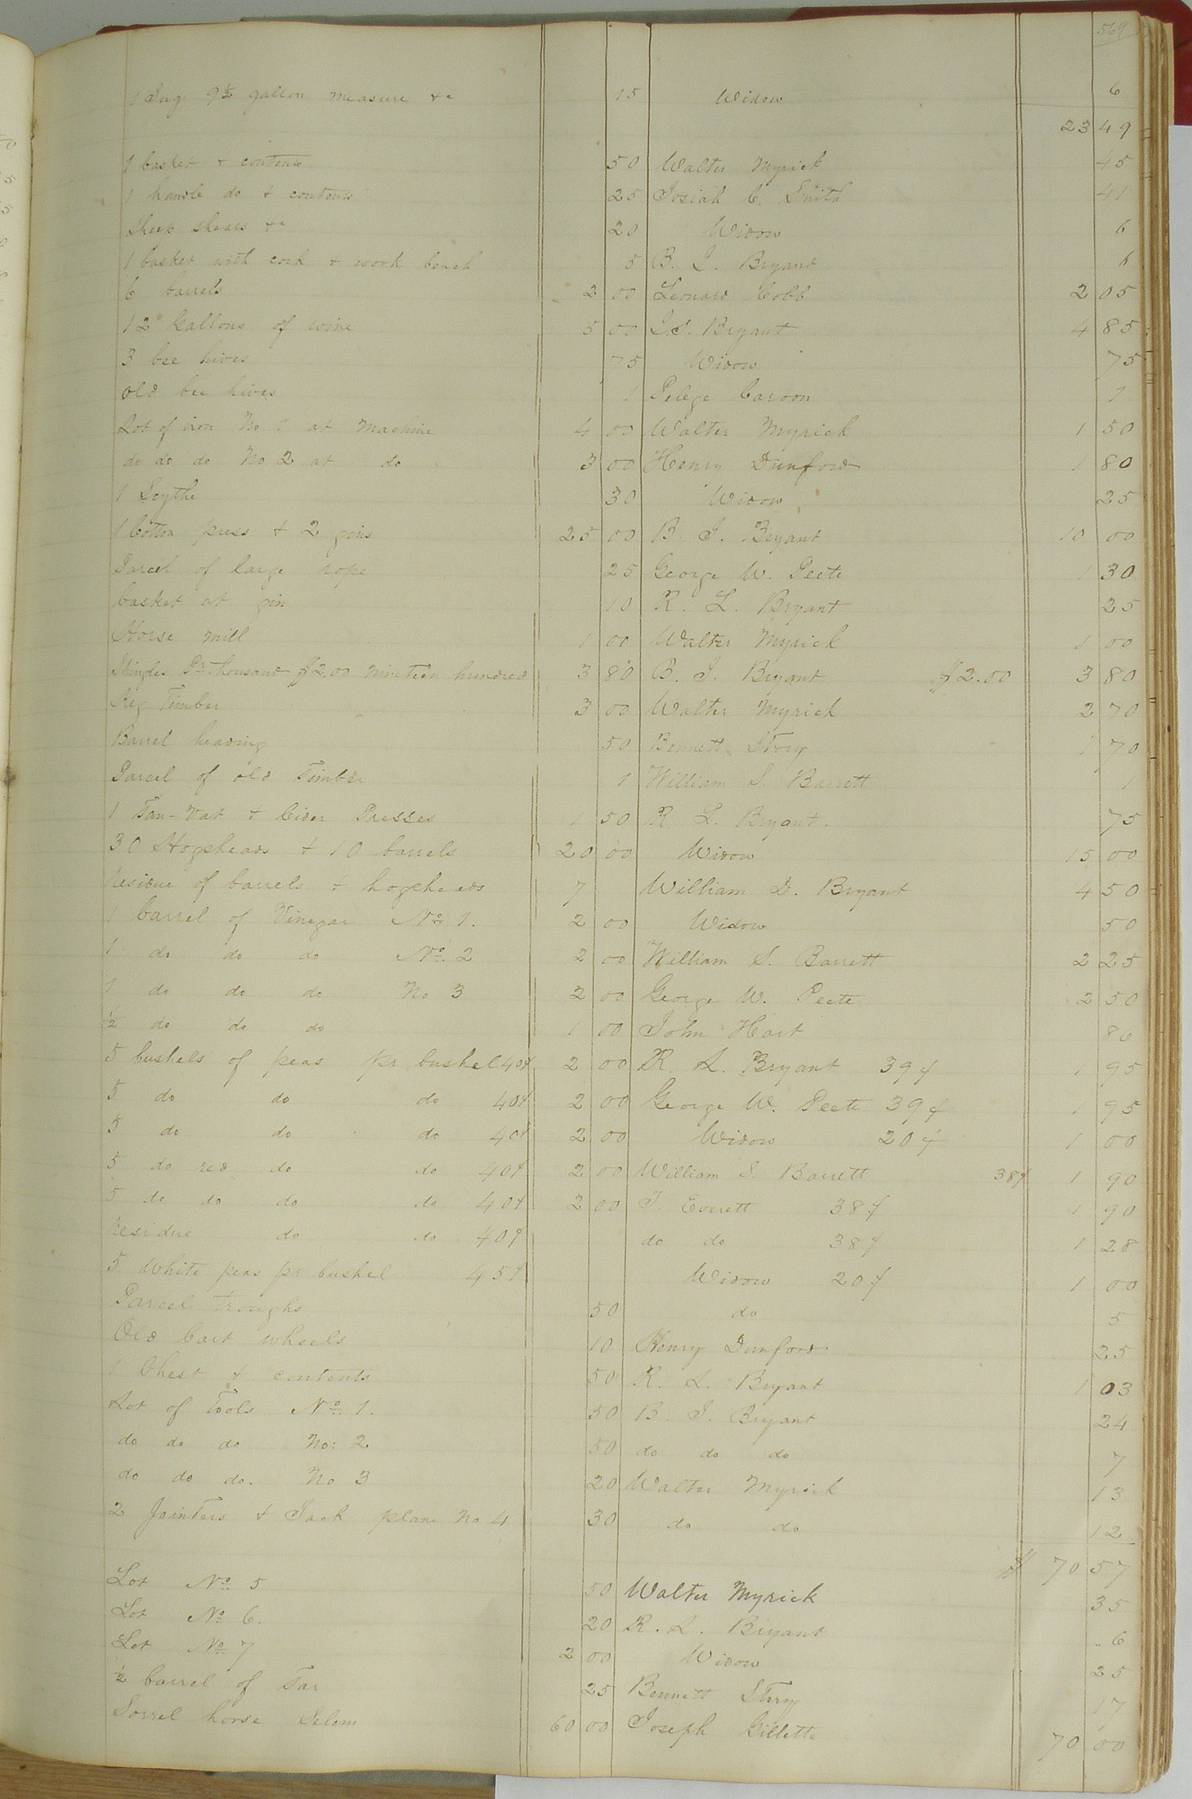 569
1 Jug 9½ gallon measure &c 15 Widow 6
23 49
1 basket & contents 50 Walter Myrick 45
1 handle do & contents 25 Josiah C. Smith 41
Sheep shears &c 20 Widow 6
1 basket with cork & work bench 5 B. J. Bryant 6
6 barrels 2 00 Leonard Cobb 2 05
12 Gallons of wine 5 00 J. S. Bryant 4 85
3 bee hives 75 Widow 75
old bee hives 1 Pelege Caroon 1
Lot of iron No 1 at Machine 4 00 Walter Myrick 1 50
do do do No 2 at do 3 00 Henry Dunford 1 80
1 Scythe 30 Widow 25
1 Cotton press & 2 gins 25 00 B. J. Bryant 10 00
Parcel of large rope 25 George W. Peete 1 30
basket at gin 10 R. L. Bryant 25
Horse mill 1 00 Walter Myrick 1 00
Shingles Pr thousand $2.00 nineteen hundred 3 80 B. J. Bryant $2.00 3 80
Timber 3 00 Walter Myrick 2 70
Barrel heading 50 Bennett Story 1 70
Parcel of old Timber 1 William S. Barrett 1
1 Tan-Vat & Cider Presses 1 50 R. L. Bryant. 75
30 Hogsheads & 10 barrels 20 00 Widow 15 00
Residue of barrels & hogsheads 7 William D. Bryant 4 50
1 barrel of Vinegar No 1. 2 00 Widow 50
1 do do do No. 2 2 00 William S. Barrett 2 25
1 do do do No 3 2 00 George W. Peete 2 50
½ do do do 1 00 John Hart 80
5 bushels of peas pr bushel 40¢ 2 00 R. L. Bryant 39¢ 1 95
5 do do do 40¢ 2 00 George W. Peete 39¢ 1 95
5 do do do 40¢ 2 00 Widow 20¢ 1 00
5 do red do do 40¢ 2 00 William S. Barrett 38¢ 1 90
5 do do do do 40¢ 2 00 J. Everett 38¢ 1 90
Residue do do 40¢ do do 38¢ 1 28
5 White peas pr bushel 45¢ Widow 20¢ 1 00
Parcel troughs 50 do 5
Old Cart wheels 10 Henry Dunford 25
1 Chest & contents 50 R. L. Bryant 1 03
Lot of Tools No. 1. 50 B. J. Bryant 24
do do do No: 2 50 do do do 7
do do do. No 3 20 Walter Myrick 13
2 Jointers & Jack plane No 4 30 do do 12
$ 70 57
Lot No. 5 50 Walter Myrick 35
Lot No 6. 20 R. L. Bryant 6
Lot No 7 2 00 Widow 25
½ barrel of Tar 25 Bennett Story 17
Sorrel horse 60 00 Joseph Gillette 70 00